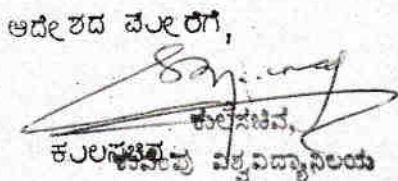 ಆದೇಶದ ಮೇರೆಗೆ,
ಕುಲಸಚಿವ,
ಕುಲಸಚಿವ
ಕುವೆಂಪು ವಿಶ್ವವಿದ್ಯಾನಿಲಯ